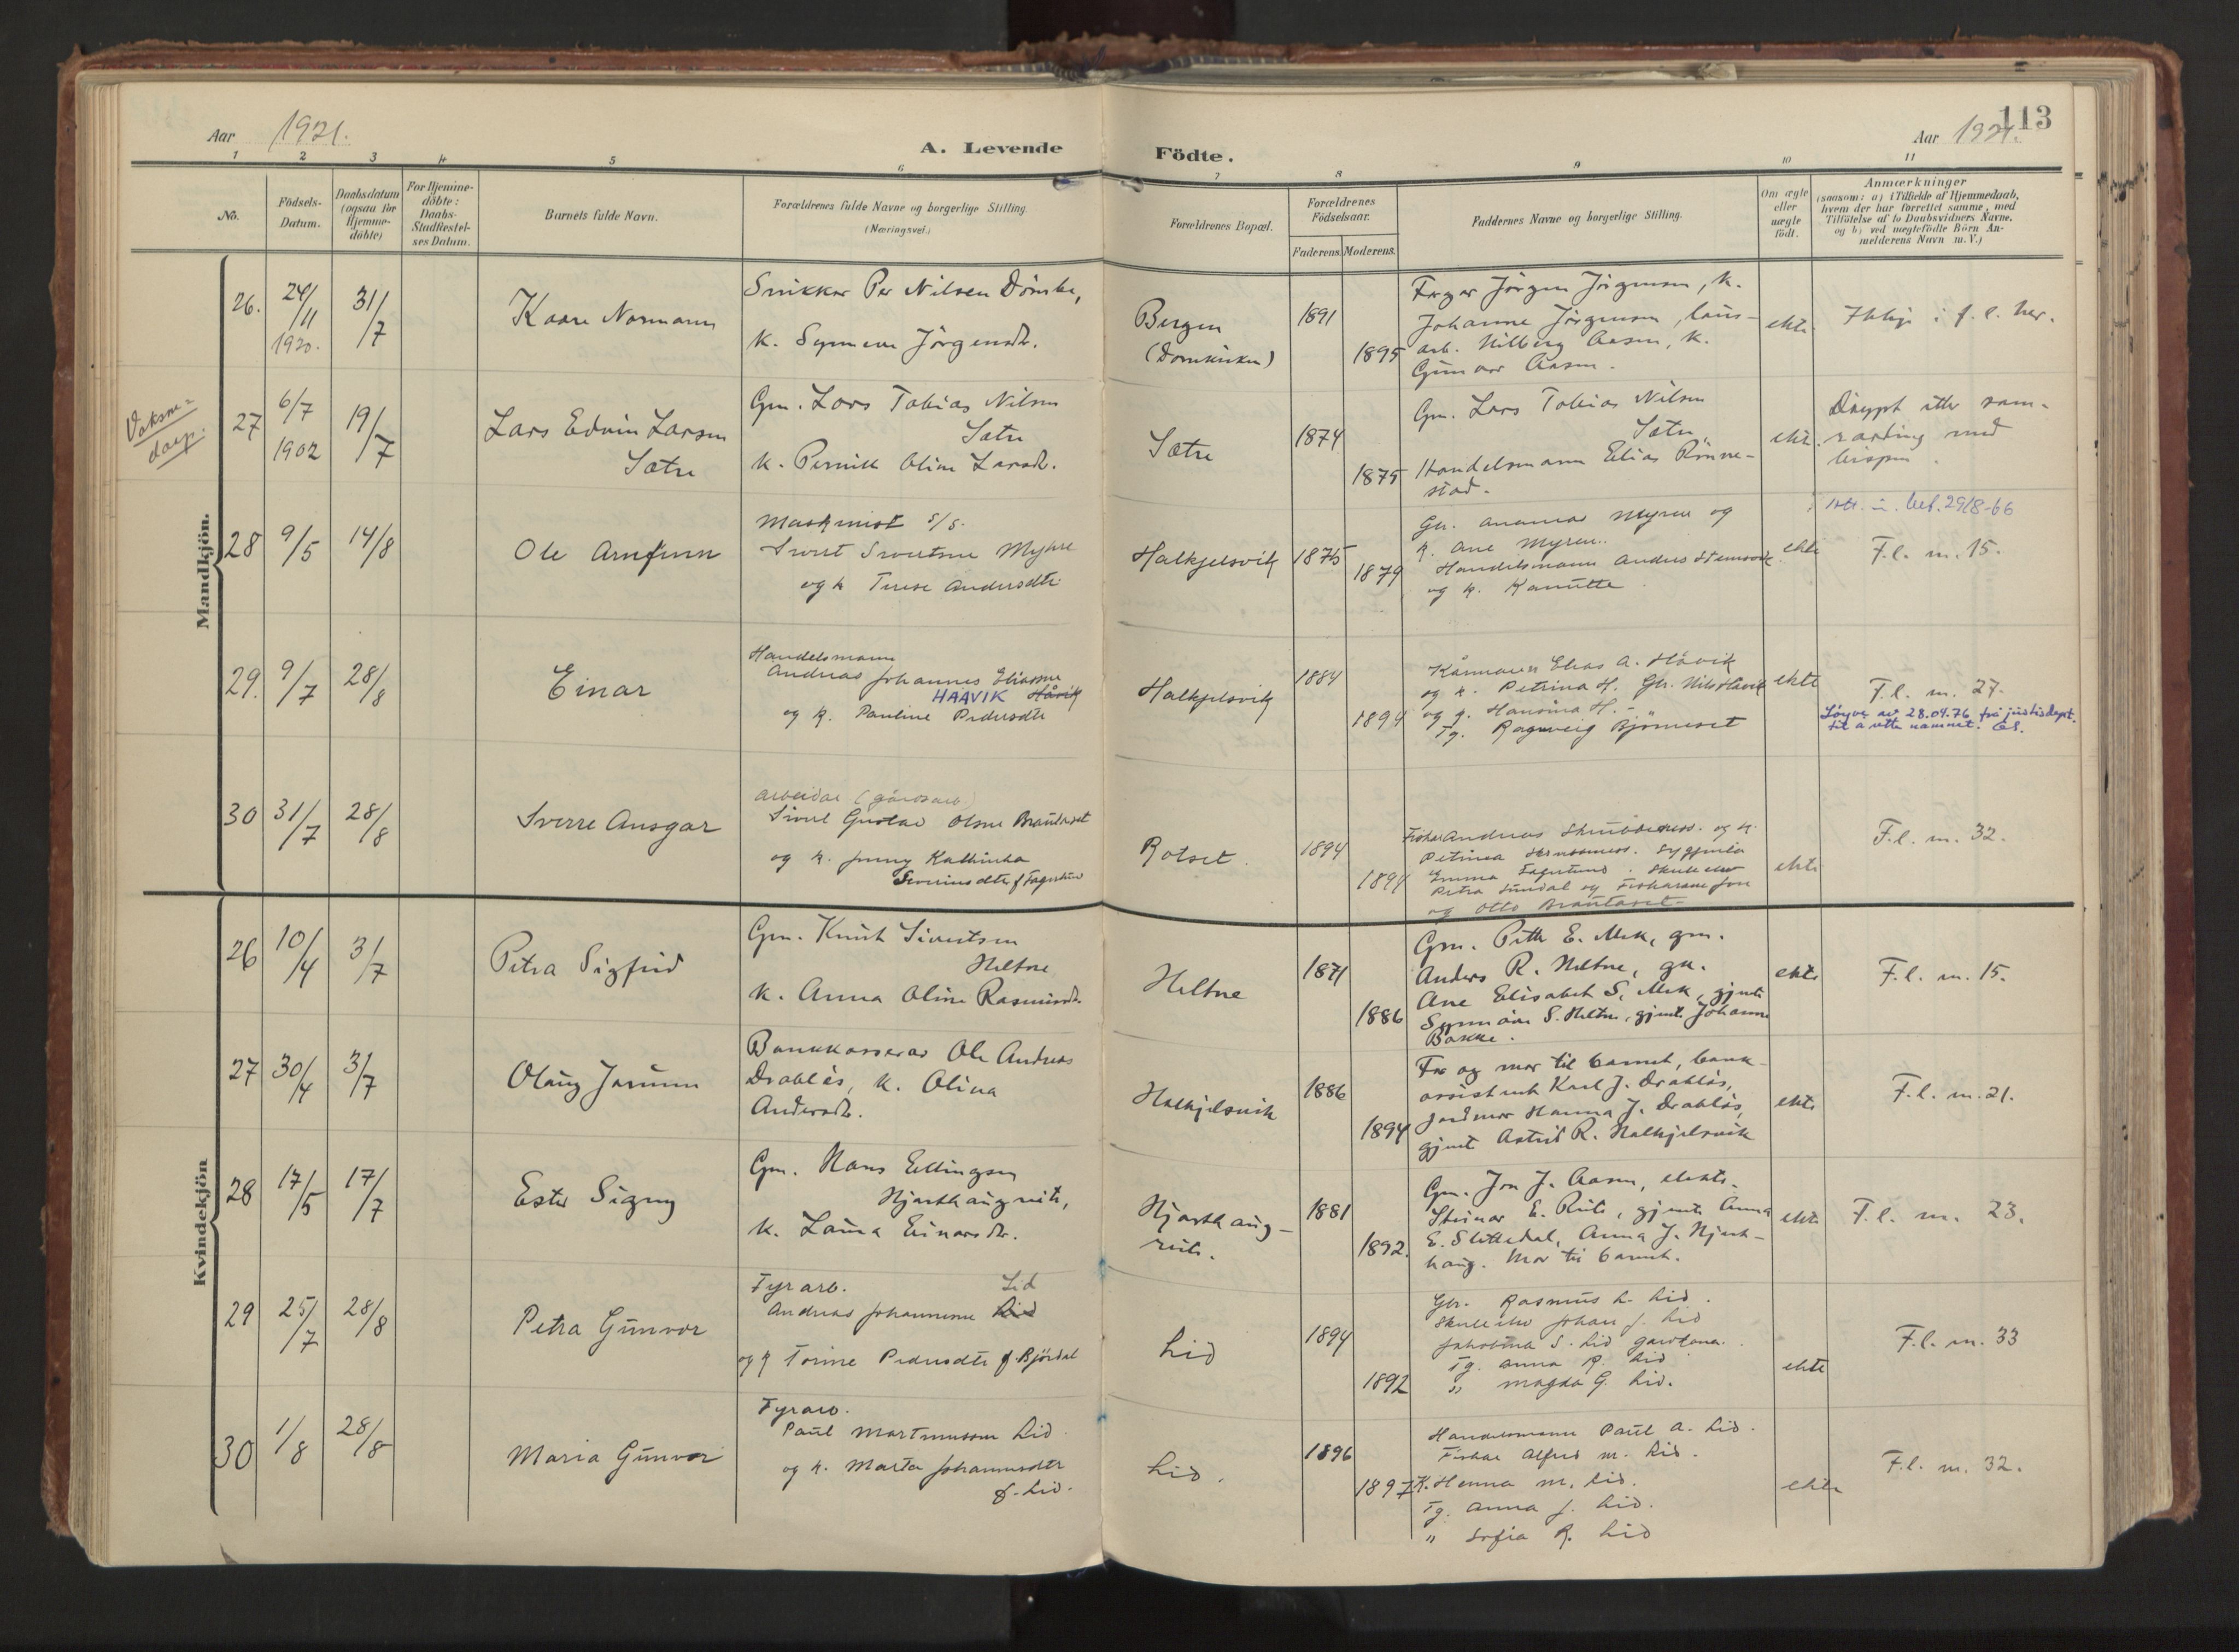 Aar 1921.
A. Levende Födte.
Aar 1921.
113
1 2 3 4 5 6 7 8 9 10 11
No.
Födsels-
Datum.
Daabsdatum
(ogsaa for
Hjemme-
döbte)
For Hjemme-
döbte:
Daabs-
Stadfæstel-
ses Datum.
Barnets fulde Navn.
Forældrenes fulde Navne og borgerlige Stilling.
(Næringsvei.)
Forældrenes Bopæl.
Forældrenes
Födselsaar.
Faderens. Moderens.
Faddernes Navne og borgerlige Stilling.
Om ægte
eller
uægte
födt.
Anmærkninger
(saasom: a) i Tilfælde af Hjemmedaab,
hvem der har forrettet samme, med
Tilföielse af to Daabsvidners Navne,
og b) ved uægtefödte Börn An-
melderens Navn m. V.)
Mandkjön.
26. 24/11 1920. 31/7
Kaare Normann
Snikkar Per Nilsen Dömbe,
k. Synneve Jörgensdr.
Bergen
(Domkirken)
1891
1895
Jörgen Jörgensen, k.
Johanne Jörgensen,
arb. Hilberg Aasen, k.
Gunvor Aasen.
ekte
Ikkje i f. l. her.
Voksne-
daap.
27 6/7 1902 19/7
Lars Edvin Larsen
Sætre
Gm. Lars Tobias Nilsen
Sætre
k. Pernille Oline Larsdr.
Sætre
1874
1875
Gm. Lars Tobias Nilsen
Sætre
Handelsmann Elias Rönne-
stad.
ekte.
Döypt etter sam-
raading med
bispen.
28 9/5 14/8
Ole Arnfinn
Maskinist s/s.
Sivert Sivertsen Myhre
og k Terese Andersdtr
Halkjelsvik
1875
1879
Gbr. Myren og
k. Ane Myren.
Handelsmann Anders
og k. Kanutte
ekte
29/8-66
F.l. m. 15.
29. 9/7 28/8
Einar
Handelsmann
Andreas Johannes Eliassen
HAAVIK Håvik
og k. Pauline Pedersdtr
Halkjelsvik
1884
1894
Kårmann Elias A. Håvik
og k. Petrina H. Gbr. Nils Håvik
og k. Hansina H.
Tg. Ragnveig Björneset
ekte
F.l. m. 27.
Löyve av 28.04.76 frå justisdept.
til å rette namnet.
30 31/7 28/8
Sverre Ansgar
arbeidar (gardsarb)
Sivert Gustav Olsen Brautaset
og k. Jenny Kathinka
Severinsdtr f Fagertun
Rotset
1894
1894
Fiskar Andreas og k.
Petrina
Emma Fagertun. Skuleelev
Petra Sundal og
og Otto Brautaset
ekte
F.l. m. 32.
Kvindekjön
26 10/4 3/7
Petra Sigfrid
Gm. Knut Sivertsen
Heltne
k. Anna Oline Rasmusdr.
Heltne
1871
1886
Gm. Petter E. Mek, gm.
Anders R. Heltne, gk.
Ane Elisabet S. Mek, gjente
Synnöve S. Heltne, gjente Johanne
Bakke.
ekte
F.l. m. 15.
27 30/4 3/7
Olaug Jorunn
Bankkasserar Ole Andreas
Drabløs, k. Olina
Andersdr.
Halkjelsvik
1886
1894
Far og mor til barnet, bank-
assistent Karl J. Drabløs,
jordmor Hanna J. Drabløs,
gjente Astrid R. Halkjelsvik
ekte
F.l. m. 21.
28 17/5 17/7
Ester Signy
Gm. Hans Ellingsen
Hjorthaugreite,
k. Laura Einarsdr.
Hjorthaug-
reite.
1881
1892.
Gm. Jon J. Aasen, elektr.
Steinar E. Reite, gjente Anna
E. Slettedal, Anna J. Hjort-
haug. Mor til barnet.
ekte
F.l. m. 23.
29 25/7 28/8
Petra Gunvor
Fyrarb. Lid
Andreas Johannessen Lid
og k Torine Pedersdtr f Björdal
Lid
1894
1892
Gbr. Rasmus L. Lid.
Skuleelev Johan J. Lid
Jakobina S. Lid gardkona.
Tg. Anna R. Lid
" Magda G. Lid.
ekte
F.l. m. 33
30 1/8 28/8
Maria Gunvor
Fyrarb.
Paul Martinussen Lid
og k. Marta Johannesdtr
f. Lid.
Lid.
1896
1897
Handelsmann Paul A. Lid.
Fiskar Alfred M. Lid.
K. Hanna M. Lid.
Tg. Anna J. Lid.
" Sofia R. Lid
ekte
F.l. m. 32.